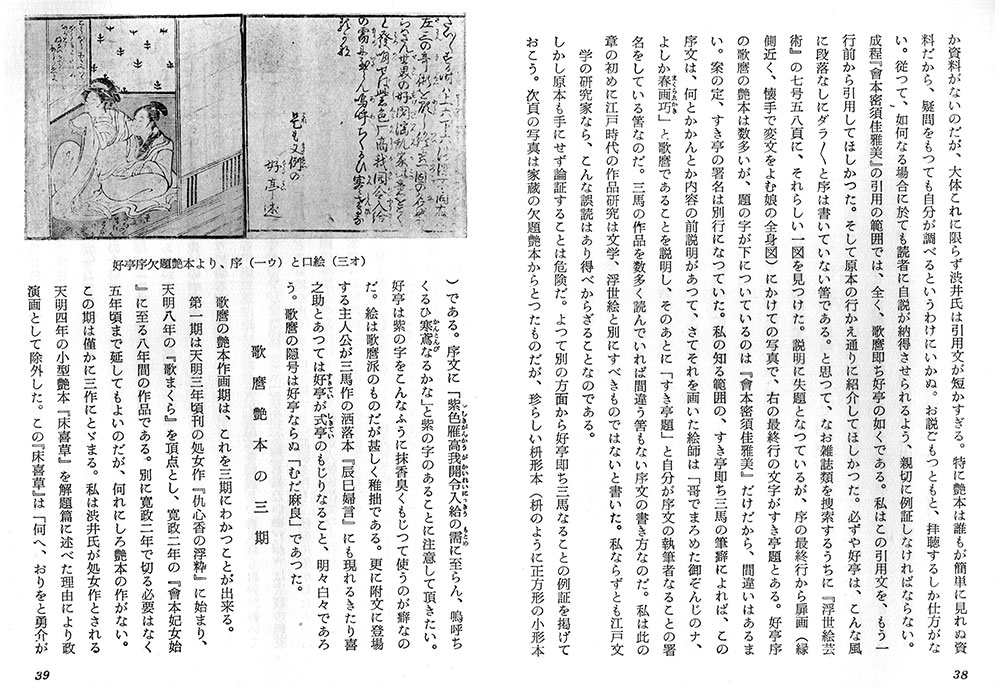 か資料がないのだが、大体これに限らず渋井氏は引用文が短かすぎる。特に艶本は誰もが簡単に見れぬ資
料だから、疑問をもつても自分が調べるというわけにいかぬ。お説ごもつともと、拝聴するしか仕方がな
い。従つて、如何なる場合に於ても読者に自説が納得させられるよう、親切に例証しなければならない。
成程『會本密須佳雅美』の引用の範囲では、全く、歌麿即ち好亭の如くである。私はこの引用文を、もう一
行前から引用してほしかつた。そして原本の行かえ通りに紹介してほしかつた。必ずや好亭は、こんな風
に段落なしにダラ〱と序は書いていない筈である。と思つて、なお雑誌類を捜索するうちに『浮世絵芸
術』の七号五八頁に、それらしい一図を見つけた。説明に失題となつているが、序の最終行から扉画（縁
側近く、懐手で変文をよむ娘の全身図）にかけての写真で、右の最終行の文字がすき亭題とある。好亭序
の歌麿の艶本は数多いが、題の字が下についているのは『會本密須佳雅美』だけだから、間違いはあるま
い。案の定、すき亭の署名は別行になつていた。私の知る範囲の、すき亭即ち三馬の筆癖によれば、この
序文は、何とかかんとか内容の前説明があつて、さてそれを画いた絵師は「哥でまろめた御ぞんじのナ、
よしか春画巧まくらゑかき」と歌麿であることを説明し、そのあとに「すき亭題」と自分が序文の執筆者なることの署
名をしている筈なのだ。三馬の作品を数多く読んでいれば間違う筈もない序文の書き方なのだ。私は此の
章の初めに江戸時代の作品研究は文学、浮世絵と別にすべきものではないと書いた。私ならずとも江戸文
学の研究家なら、こんな誤読はあり得べからざることなのである。
しかし原本も手にせず論証することは危険だ。よつて別の方面から好亭即ち三馬なることの例証を掲げて
おこう。次頁の写真は家蔵の欠題艶本からとつたものだが、珍らしい枡形本（枡のように正方形の小形本
38
好亭序欠題艶本より、序（一ゥ）と口絵（三オ）
）である。序文に「紫色雁高我開令入給の需もとめに至らん、嗚呼ち
くるひ寒鳶かんとんびなるかな」と紫の字のあることに注意して頂きたい。
好亭は紫の字をこんなふうに抹香臭くもじつて使うのが癖なの
だ。絵は歌麿派のものだが甚しく稚拙である。更に附文に登場
する主人公が三馬作の洒落本『辰巳婦言』にも現れるきたり喜
之助とあつては好亭すきていが式亭しきていのもじりなること、明々白々であろ
う。歌麿の隠号は好亭ならぬ「むだ麻良」であつた。
歌麿艶本の三期
歌麿の艶本作画期は、これを三期にわかつことが出来る。
第一期は天明三年頃刊の処女作『仇心香の浮粋』に始まり、
天明八年の『歌まくら』を頂点とし、寛政二年の『會本妃女始
』に至る八年間の作品である。別に寛政二年で切る必要はなく
五年頃まで延してもよいのだが、何れにしろ艶本の作がない。
この期は僅かに三作にとゞまる。私は渋井氏が処女作とされる
天明四年の小型艶本『床喜草』を解題篇に述べた理由により政
演画として除外した。この『床喜草』は「何へ、おりをと勇介が
39